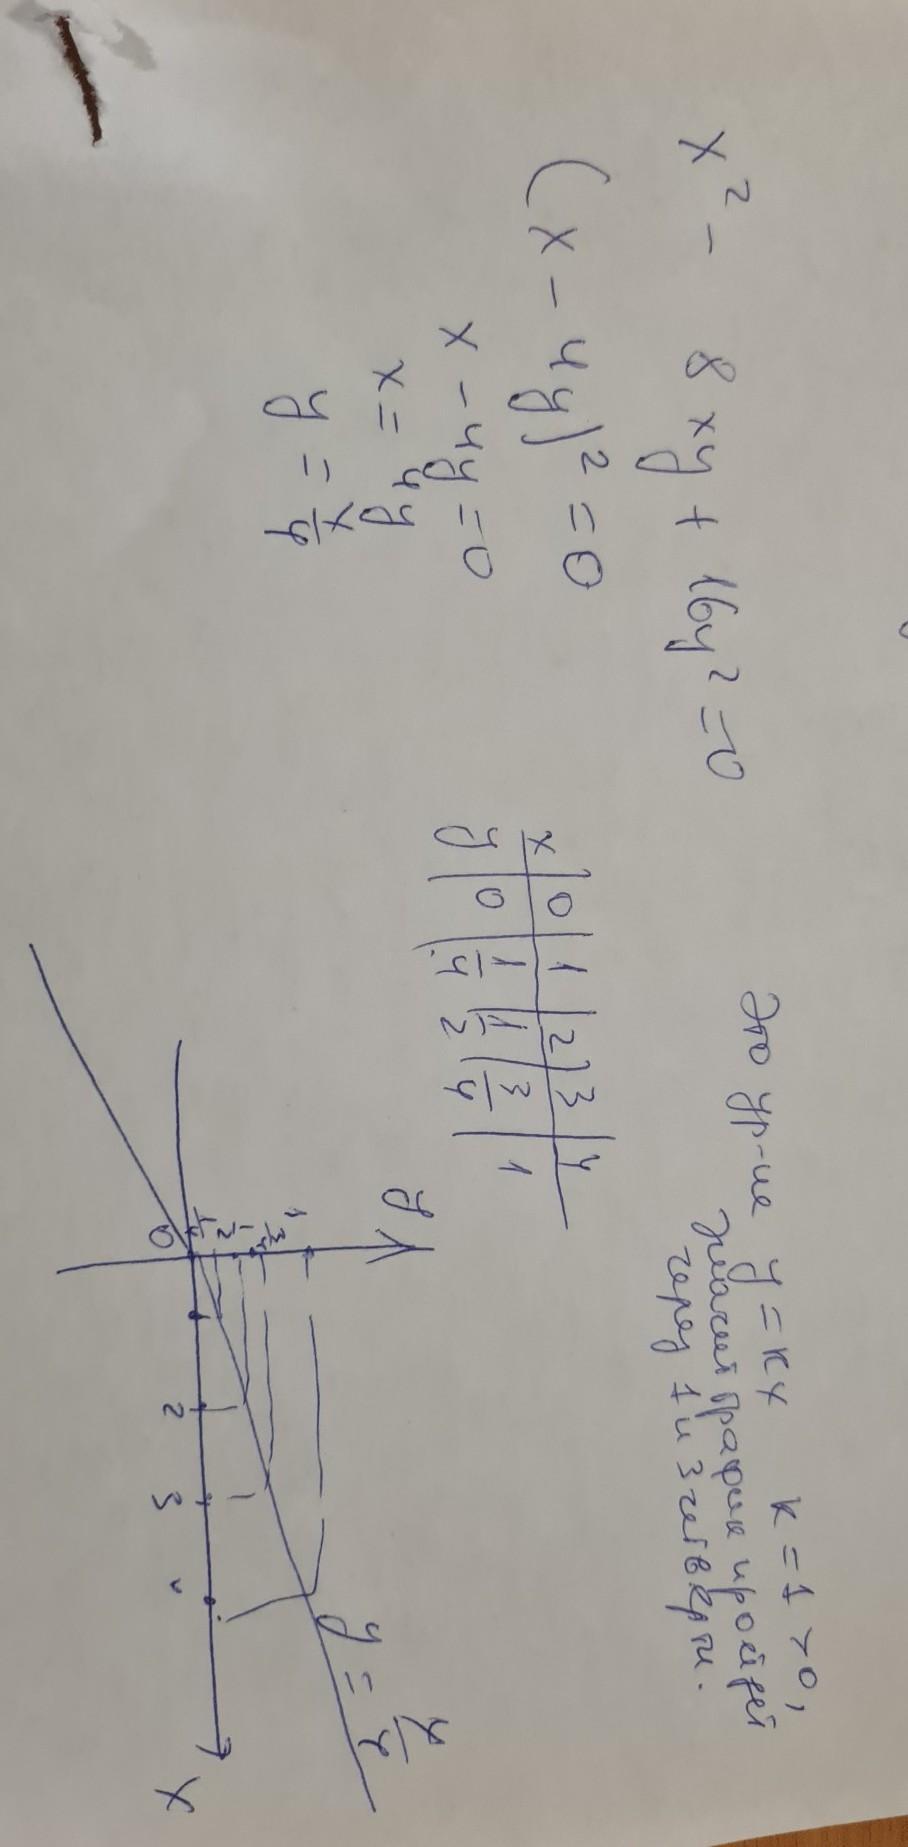 x² - 8xy + 16y² = 0
(x - 4y)² = 0
x - 4y = 0
x = 4y
y = x/4
x | 0 | 1 | 2 | 3 | 4
y | 0 | 1/4 | 1/2 | 3/4 | 1
Это ур-ие y = kx k = 1 > 0,
значит график пройдет
через 1 и 3 четверти.
y
1
3/4
1/2
1/4
0
2
3
4
x
y = x/4